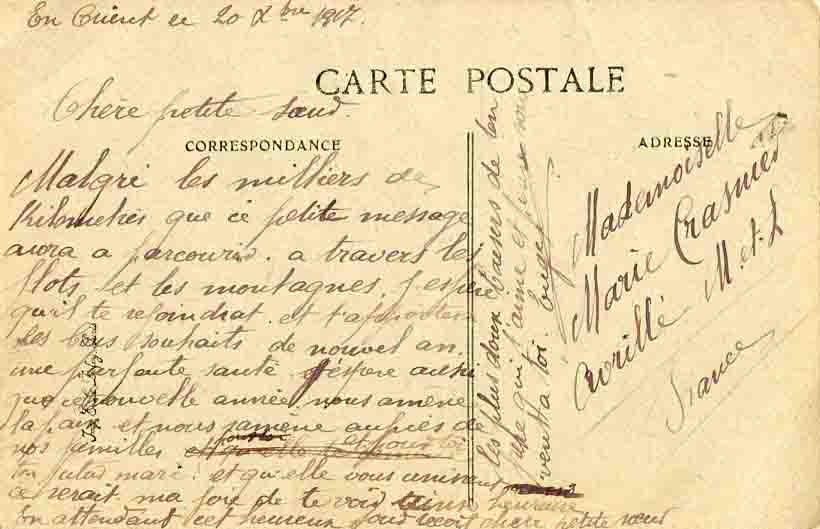 En Orient ce 20 Xbre 1917.
CARTE POSTALE
Chère petite sœur.
CORRESPONDANCE
ADRESSE
Malgré les milliers de
Kilometrés que ce petite message
aura a parcourir. a travers les
flots et les montagnes, j'espère
qu'il te rejoindrat. et t'apportera
les bons souhaits de nouvel an.
une parfaite santé J'éspère aussi
que ce nouvelle année nous amène
la paix et nous ramène auprès de
nos familles et pour toi
ton futur mari. et qu'elle vous
ce serait ma joie de te voir heureuse
En attendant cet heureux jour reçois chere petite sœur
les plus doux baisers de ton
qui t'aime et pense
a toi
Mademoiselle
Marie Crasnier
Avrillé M-et-L
France